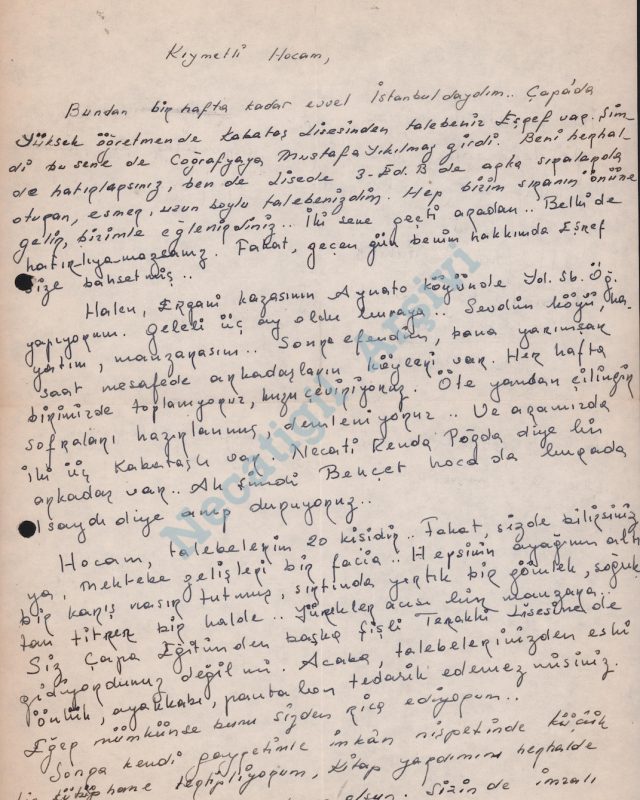 Kıymetli Hocam,
Bundan bir hafta kadar evvel İstanbuldaydım.. Çapa'da
Yüksek öğretmende Kabataş Lisesinden talebeniz Eşref var. Şim-
di bu sene de Coğrafyaya Mustafa Yıkılmaz girdi. Beni herhal-
de hatırlarsınız, ben de Lisede 3-Ed.B de arka sıralarda
oturan, esmer, uzun boylu talebenizdim. Hep bizim sıranın önüne
gelir, bizimle eğlenirdiniz.. İki sene geçti aradan.. Belki de
hatırlıyamazsanız. Fakat, geçen gün benim hakkımda Eşref
size bahsetmiş..
Halen, Ergani kazasının Aynato köyünde Yd. Sb. Öğ.
yapıyorum. Geleli üç ay oldu buraya.. Sevdim köyü, ha-
yatım, manzarasını.. Sonra efendim, bana yarımşar
saat mesafede arkadaşların köyleri var. Her hafta
birimizde toplanıyoruz, kuzu çeviriyoruz. Öte yandan çilingir
sofraları hazırlanmış, demleniyoruz.. Ve aramızda
iki üç Kabataşlı var. Necati Renda Poğda diye bir
arkadaş var.. Ah şimdi Behçet hoca da burada
olsaydı diye anıp duruyoruz..
Hocam, talebelerim 20 kişidir.. Fakat, sizde bilirsiniz
ya, mektebe gelişleri bir facia.. Hepsinin ayağının altı
bir karış nasır tutmuş, sırtında yırtık bir gömlek, soğuk
tan titrer bir halde.. Yürekler acısı bir manzara..
Siz Çapa Eğitimden başka Şişli Terakki Lisesine de
gidiyordunuz değil mi. Acaba, talebelerinizden eski
önlük, ayakkabı, pantalon tedarik edemez misiniz.
Eğer mümkünse bunu sizden rica ediyorum..
Sonra kendi gayretimle imkân nispetinde küçük
bir kütüphane tertipliyorum, kitap yardımını herhalde
olsun. Sizin de imzalı
Necatigil Arşivi